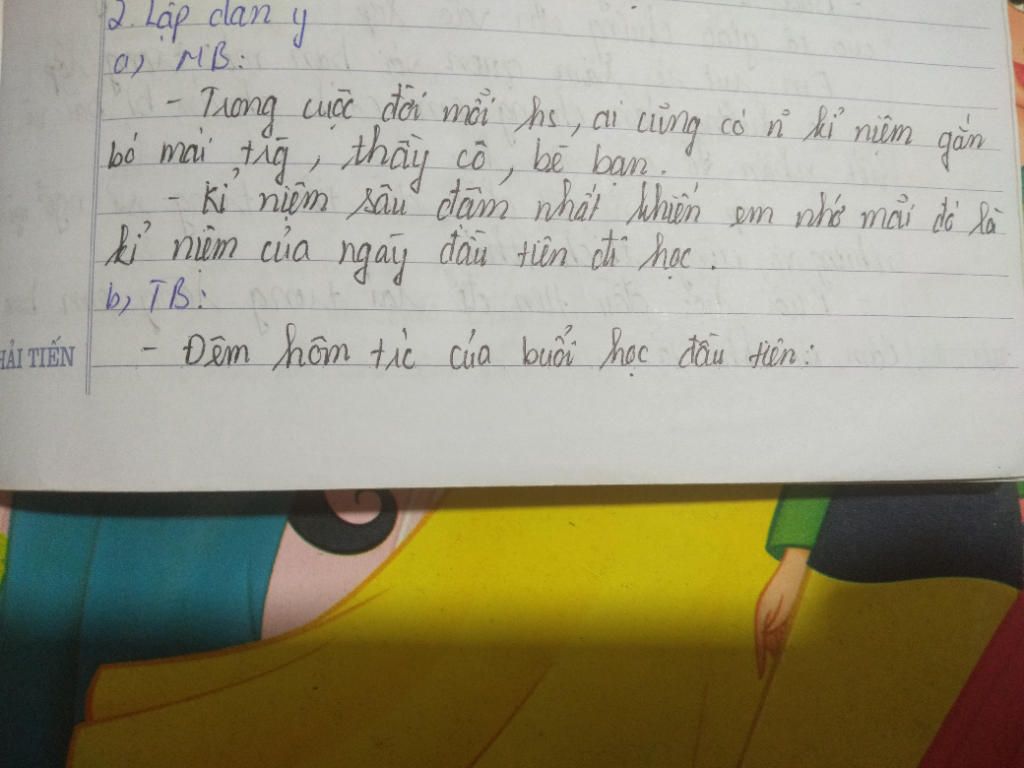 2. Lập dàn ý
a, MB:
- Trong cuộc đời mỗi hs, ai cũng có n~ kỉ niệm gắn
bó mái trg, thầy cô, bè bạn.
- Kỉ niệm sâu đậm nhất khiến em nhớ mãi đó là
kỉ niệm của ngày đầu tiên đi học.
b, TB:
HẢI TIẾN
- Đêm hôm trc của buổi học đầu tiên: